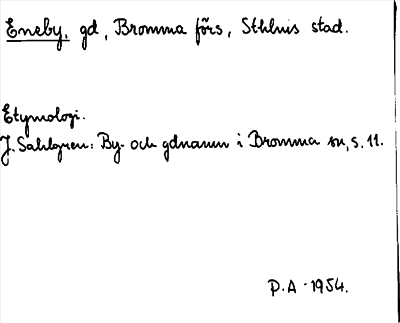 Eneby, gd, Bromma förs, Sthlms stad.
Etymologi.
J. Sahlgren: By- och gdnamn i Bromma sn, s. 11.
P.A - 1954.